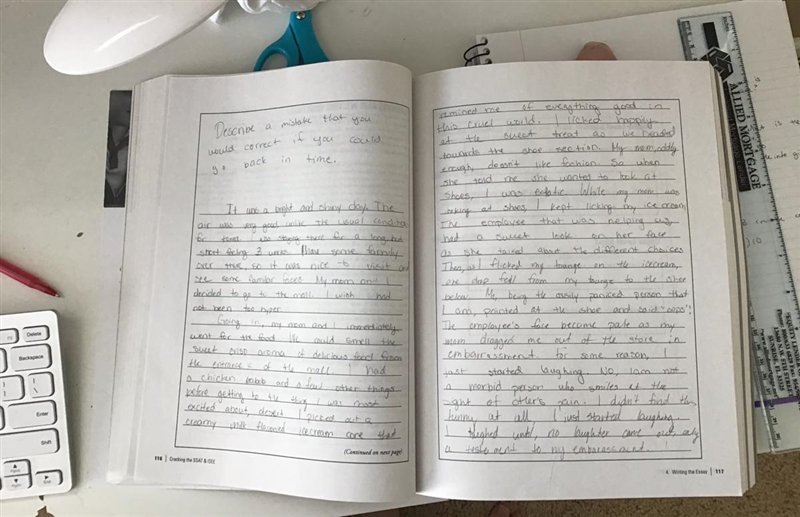 Describe a mistake that you
would correct if you could
go back in time.
It was a bright and shiny day. The
air was very good unlike the usual conditions
for We stayed there for a long, but
short feeling 3 weeks. I have some family
over there, so it was nice to visit and
see some familiar faces. My mom and I
decided to go to the mall. I wish I had
not been too hyper.
Going in, my mom and I immediately
went for the food. We could smell the
sweet crisp aroma of delicious food from
the entrance of the mall. I had
a chicken kabob and a few other things
before getting to the thing I was most
excited about, desert. I picked out a
creamy milk flavored icecream cone that
(Continued on next page)
116 | Cracking the SSAT & ISEE
remined me of everything good in
this cruel world. I licked happily
at the sweet treat as we headed
towards the shoe section. My mom, oddly
enough, doesn't like fashion. So when
she told me she wanted to look at
shoes, I was estatic. While my mom was
looking at shoes, I kept licking my icecream.
The employee that was helping us,
had a sweet look on her face
as she talked about the different choices.
Then, as I flicked my tounge on the icecream,
one drop fell from my tounge to the shoe
below. Me, being the easily panicked person that
I am, pointed at the shoe and said "oops"!
The employee's face became pale as my
mom dragged me out of the store in
embarressment. For some reason, I
just started laughing. No, I am not
a morbid person who smiles at the
sight of other's pain. I didn't find this
funny at all. I just started laughing.
I laughed until, no laughter came out, only
a testement to my embarassment.
4. Writing the Essay | 117
ALLIED MORTGAGE
Delete
Backspace
Enter
Shift
End